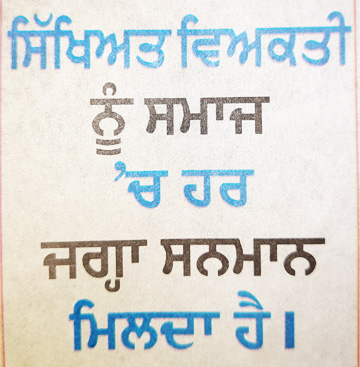 ਸਿੱਖਿਅਤ ਵਿਅਕਤੀ
ਨੂੰ ਸਮਾਜ
'ਚ ਹਰ
ਜਗ੍ਹਾ ਸਨਮਾਨ
ਮਿਲਦਾ ਹੈ।